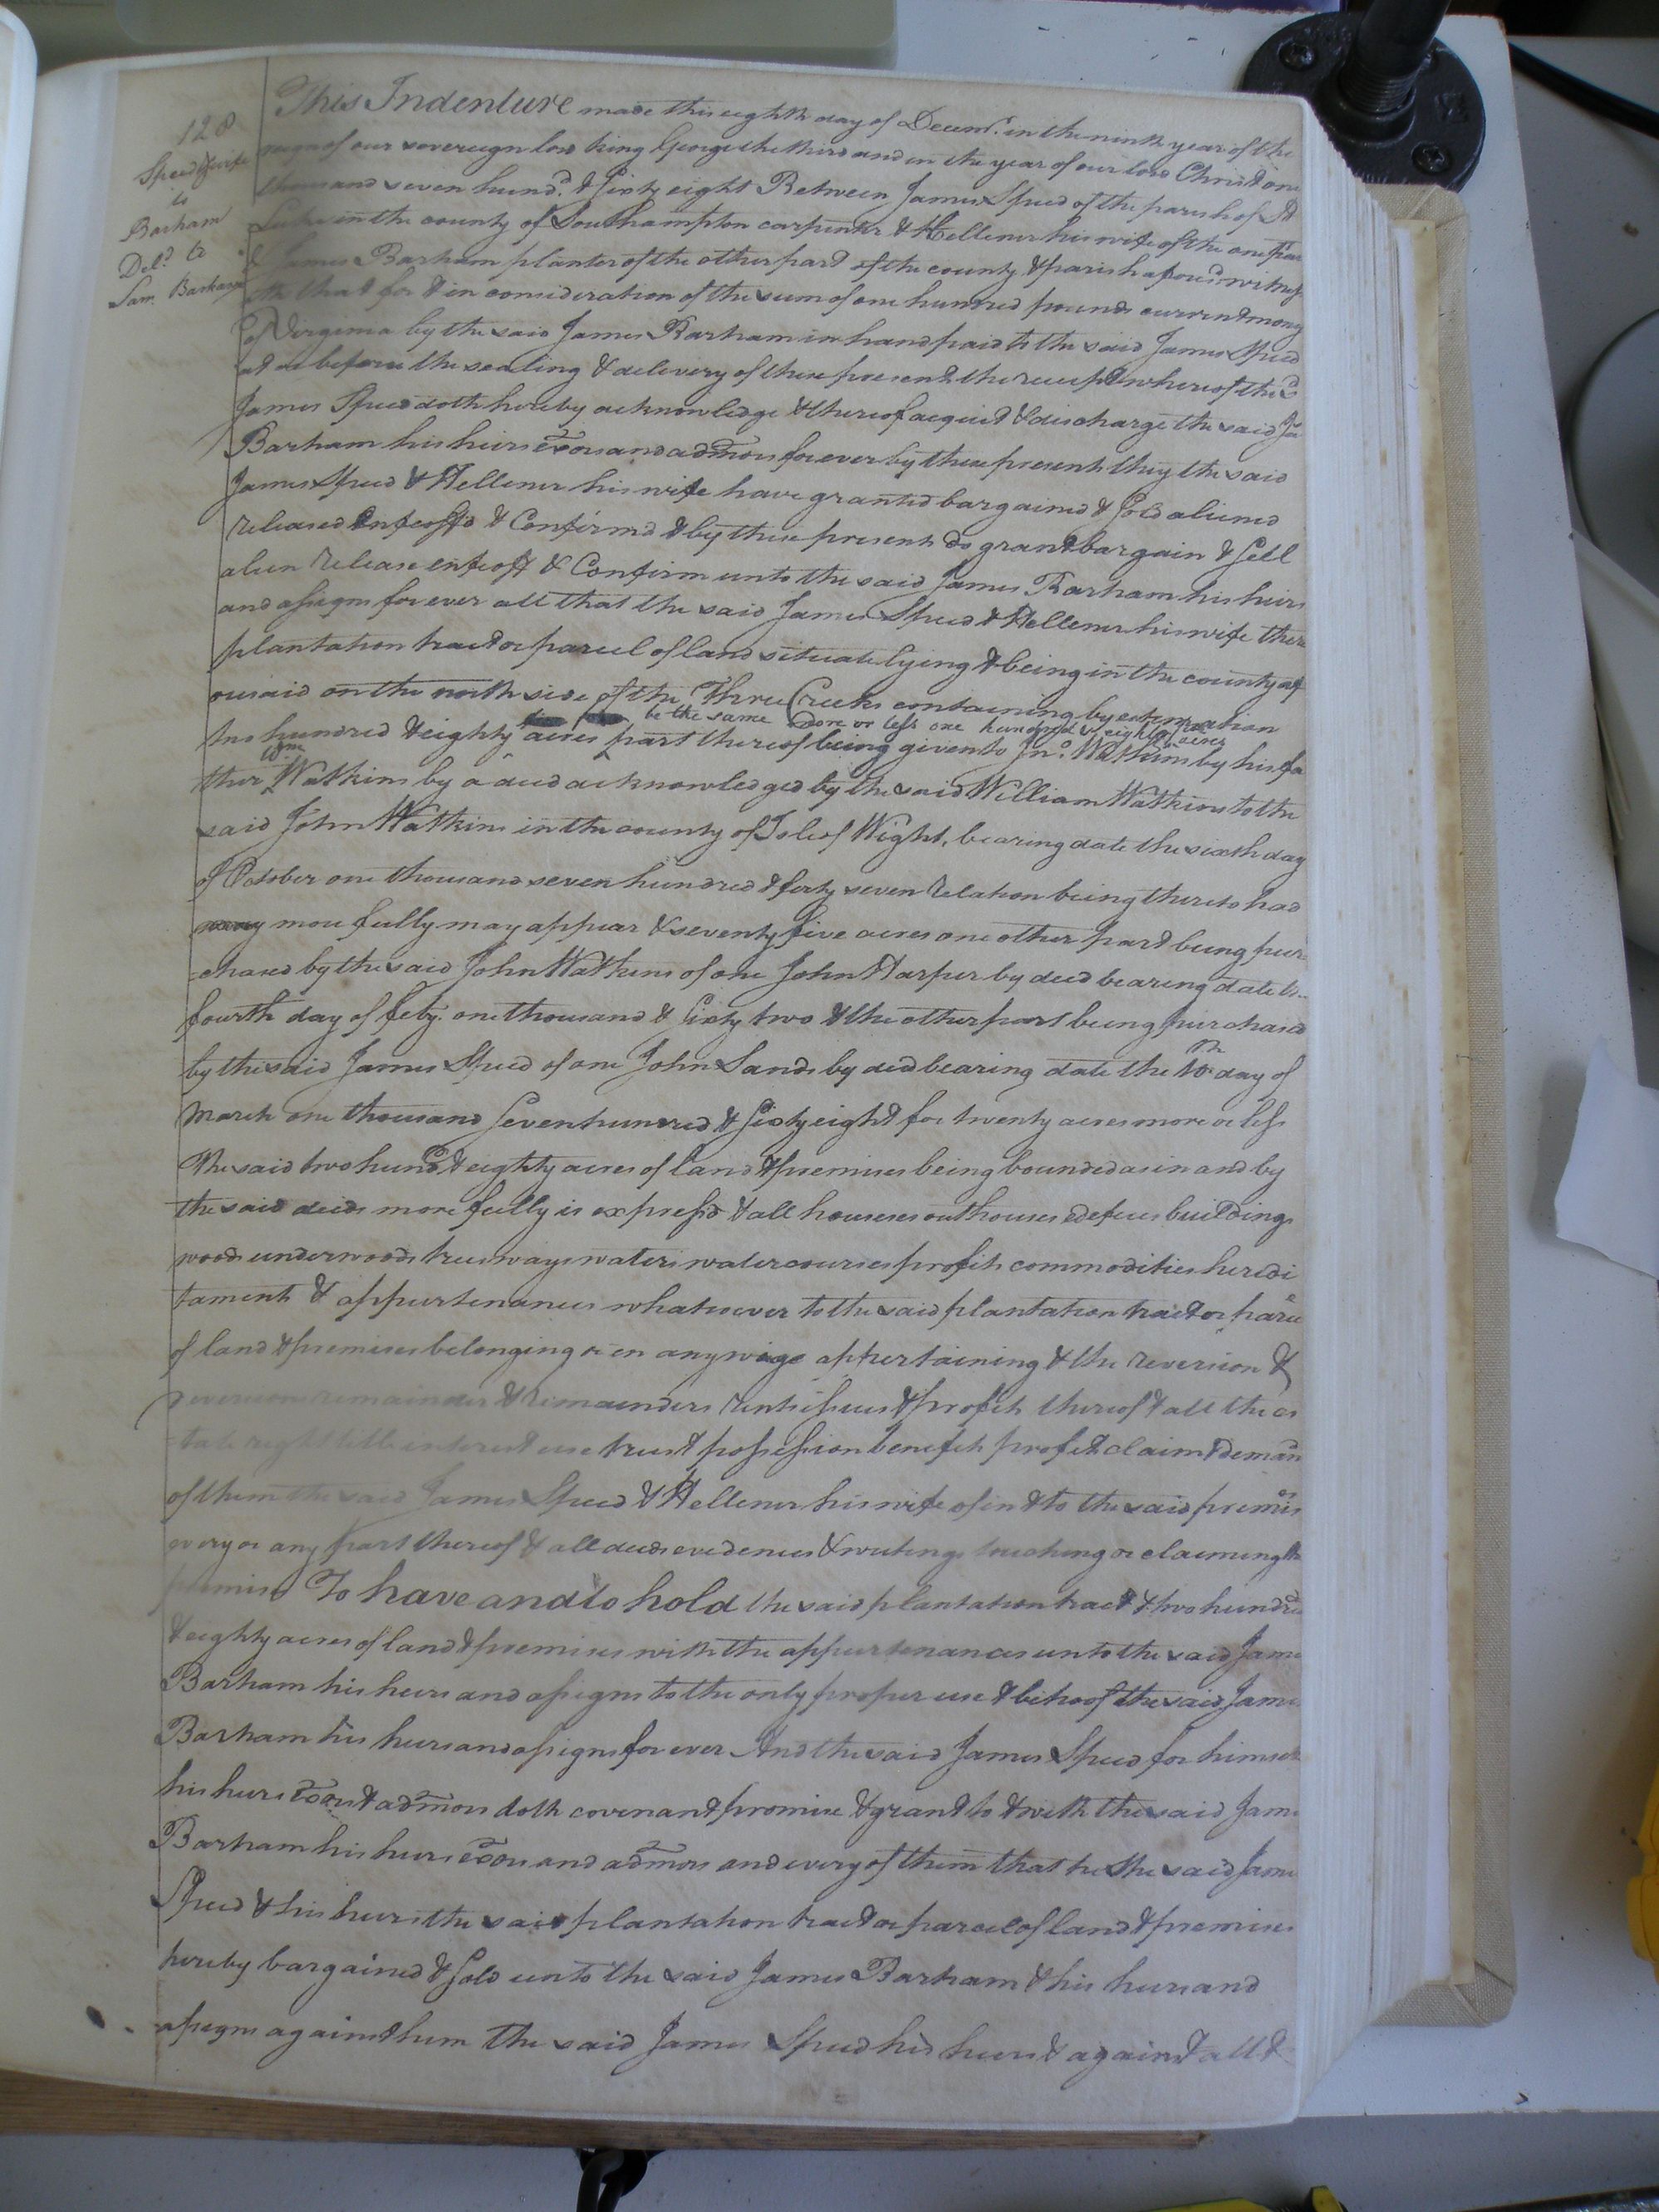 128
Speed & wife
to
Barham
Del.d to
Sam. Barham
This Indenture made this eighth day of Decem.r in the ninth year of the
reign of our sovereign lord king George the third and in the year of our lord Christ one
thousand seven hund.d & sixty eight Between James Speed of the parish of St
Lukes in the county of Southampton carpenter & Hellener his wife of the one part
& James Barham planter of the other part of the county & parish afores.d witness
eth that for & in consideration of the sum of one hundred pounds current mony
of Virginia by the said James Barham in hand paid to the said James Speed
at or before the sealing & delevery of these present the receipt whereof the sd
James Speed doth hereby acknowledge & thereof acquit & discharge the said Ja
Barham his heirs exors and admors for ever by these presents they the said
James Speed & Hellener his wife have granted bargained & sold aliened
released enfeoff'd & Confirm'd & by these presents do grant bargain & sell
alien release enfeoff & Confirm unto the said James Barham his heirs
and assigns for ever all that the said James Speed & Hellener his wife there
plantation tract or parcel of land situate lying & being in the county af
oresaid on the north side of the Three Creeks containing by estimation
be the same more or less one hundred & eighty acres
two hundred & eighty acres part thereof being given to Jn.o Watkins by his fa
ther Wm Watkins by a deed acknowledged by the said William Watkins to the
said John Watkins in the county of Isle of Wight, bearing date the sixth day
of October one thousand seven hundred & forty seven relation being thereto had
more fully may appear & seventy five acres one other part being pur
=chased by the said John Watkins of one John Harper by deed bearing date the
fourth day of feby. one thousand & sixty two & the other part being purchased
by the said James Speed of one John Sands by deed bearing date the 10th day of
March one thousand seven hundred & sixty eight for twenty acres more or less
the said two hund.d & eighty acres of land & premises being bounded as in and by
the said deeds more fully is express'd & all houses outhouses edefices buildings
woods underwoods trees ways waters watercourses profits commodities heredi
taments & appurtenances whatsoever to the said plantation tract or parce
of land & premises belonging or in any wage appertaining & the reversion &
reversions remainder & remainders rents issues & profits thereof & all the es
tate right title interest use trust possession benefit profit claim & deman
of them the said James Speed & Hellener his wife of in & to the said premises
every or any part thereof & all deeds evedences & writings touching or claiming the
premises To have and to hold the said plantation tract & two hundred
& eighty acres of land & premises with the appurtenances unto the said Jame
Barham his heirs and assigns to the only proper use & behoof the said Jame
Barham his heirs and assigns for ever And the said James Speed for himself
his heirs exors & admors doth covenant promise & grant to & with the said Jam
Barham his heirs exors and admors and every of them that he the said Jame
Speed & his heirs the said plantation tract or parcel of land & premises
hereby bargained & sold unto the said James Barham & his heirs and
assigns against him the said James Speed his heirs & against all &